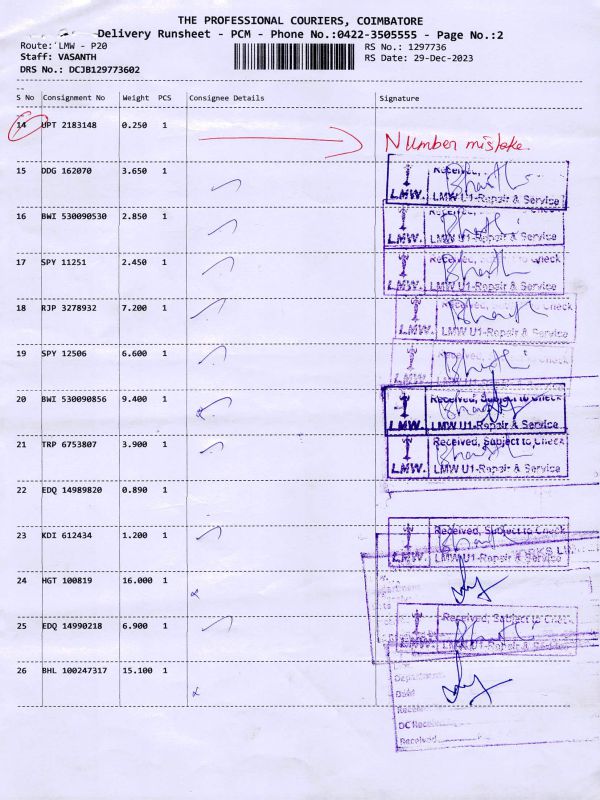 THE PROFESSIONAL COURIERS, COIMBATORE
Delivery Runsheet - PCM - Phone No.:0422-3505555 - Page No.:2
Route: LMW - P20 RS No.: 1297736
Staff: VASANTH RS Date: 29-Dec-2023
DRS No.: DCJB129773602
S No Consignment No Weight PCS Consignee Details Signature
14 UPT 2183148 0.250 1 Number mistake
15 DDG 162070 3.650 1
Received,
LMW. LMW U1-Repair & Service
16 BWI 530090530 2.850 1
LMW. LMW U1-Repair & Service
17 SPY 11251 2.450 1 Received, Subject to Check
LMW. LMW U1-Repair & Service
18 RJP 3278932 7.200 1 Received, Subject to Check
LMW. LMW U1-Repair & Service
19 SPY 12506 6.600 1 Received, Subject to Check
LMW. LMW U1-Repair & Service
20 BWI 530090856 9.400 1 Received, Subject to Check
LMW. LMW U1-Repair & Service
21 TRP 6753807 3.900 1 Received, Subject to Check
LMW. LMW U1-Repair & Service
22 EDQ 14989820 0.890 1
23 KDI 612434 1.200 1 Received, Subject to Check
LMW. LMW U1-Repair & Service
24 HGT 100819 16.000 1
25 EDQ 14990218 6.900 1 Received, Subject to Check
LMW. LMW U1-Repair & Service
26 BHL 100247317 15.100 1
Department
Date
DC Received
Received